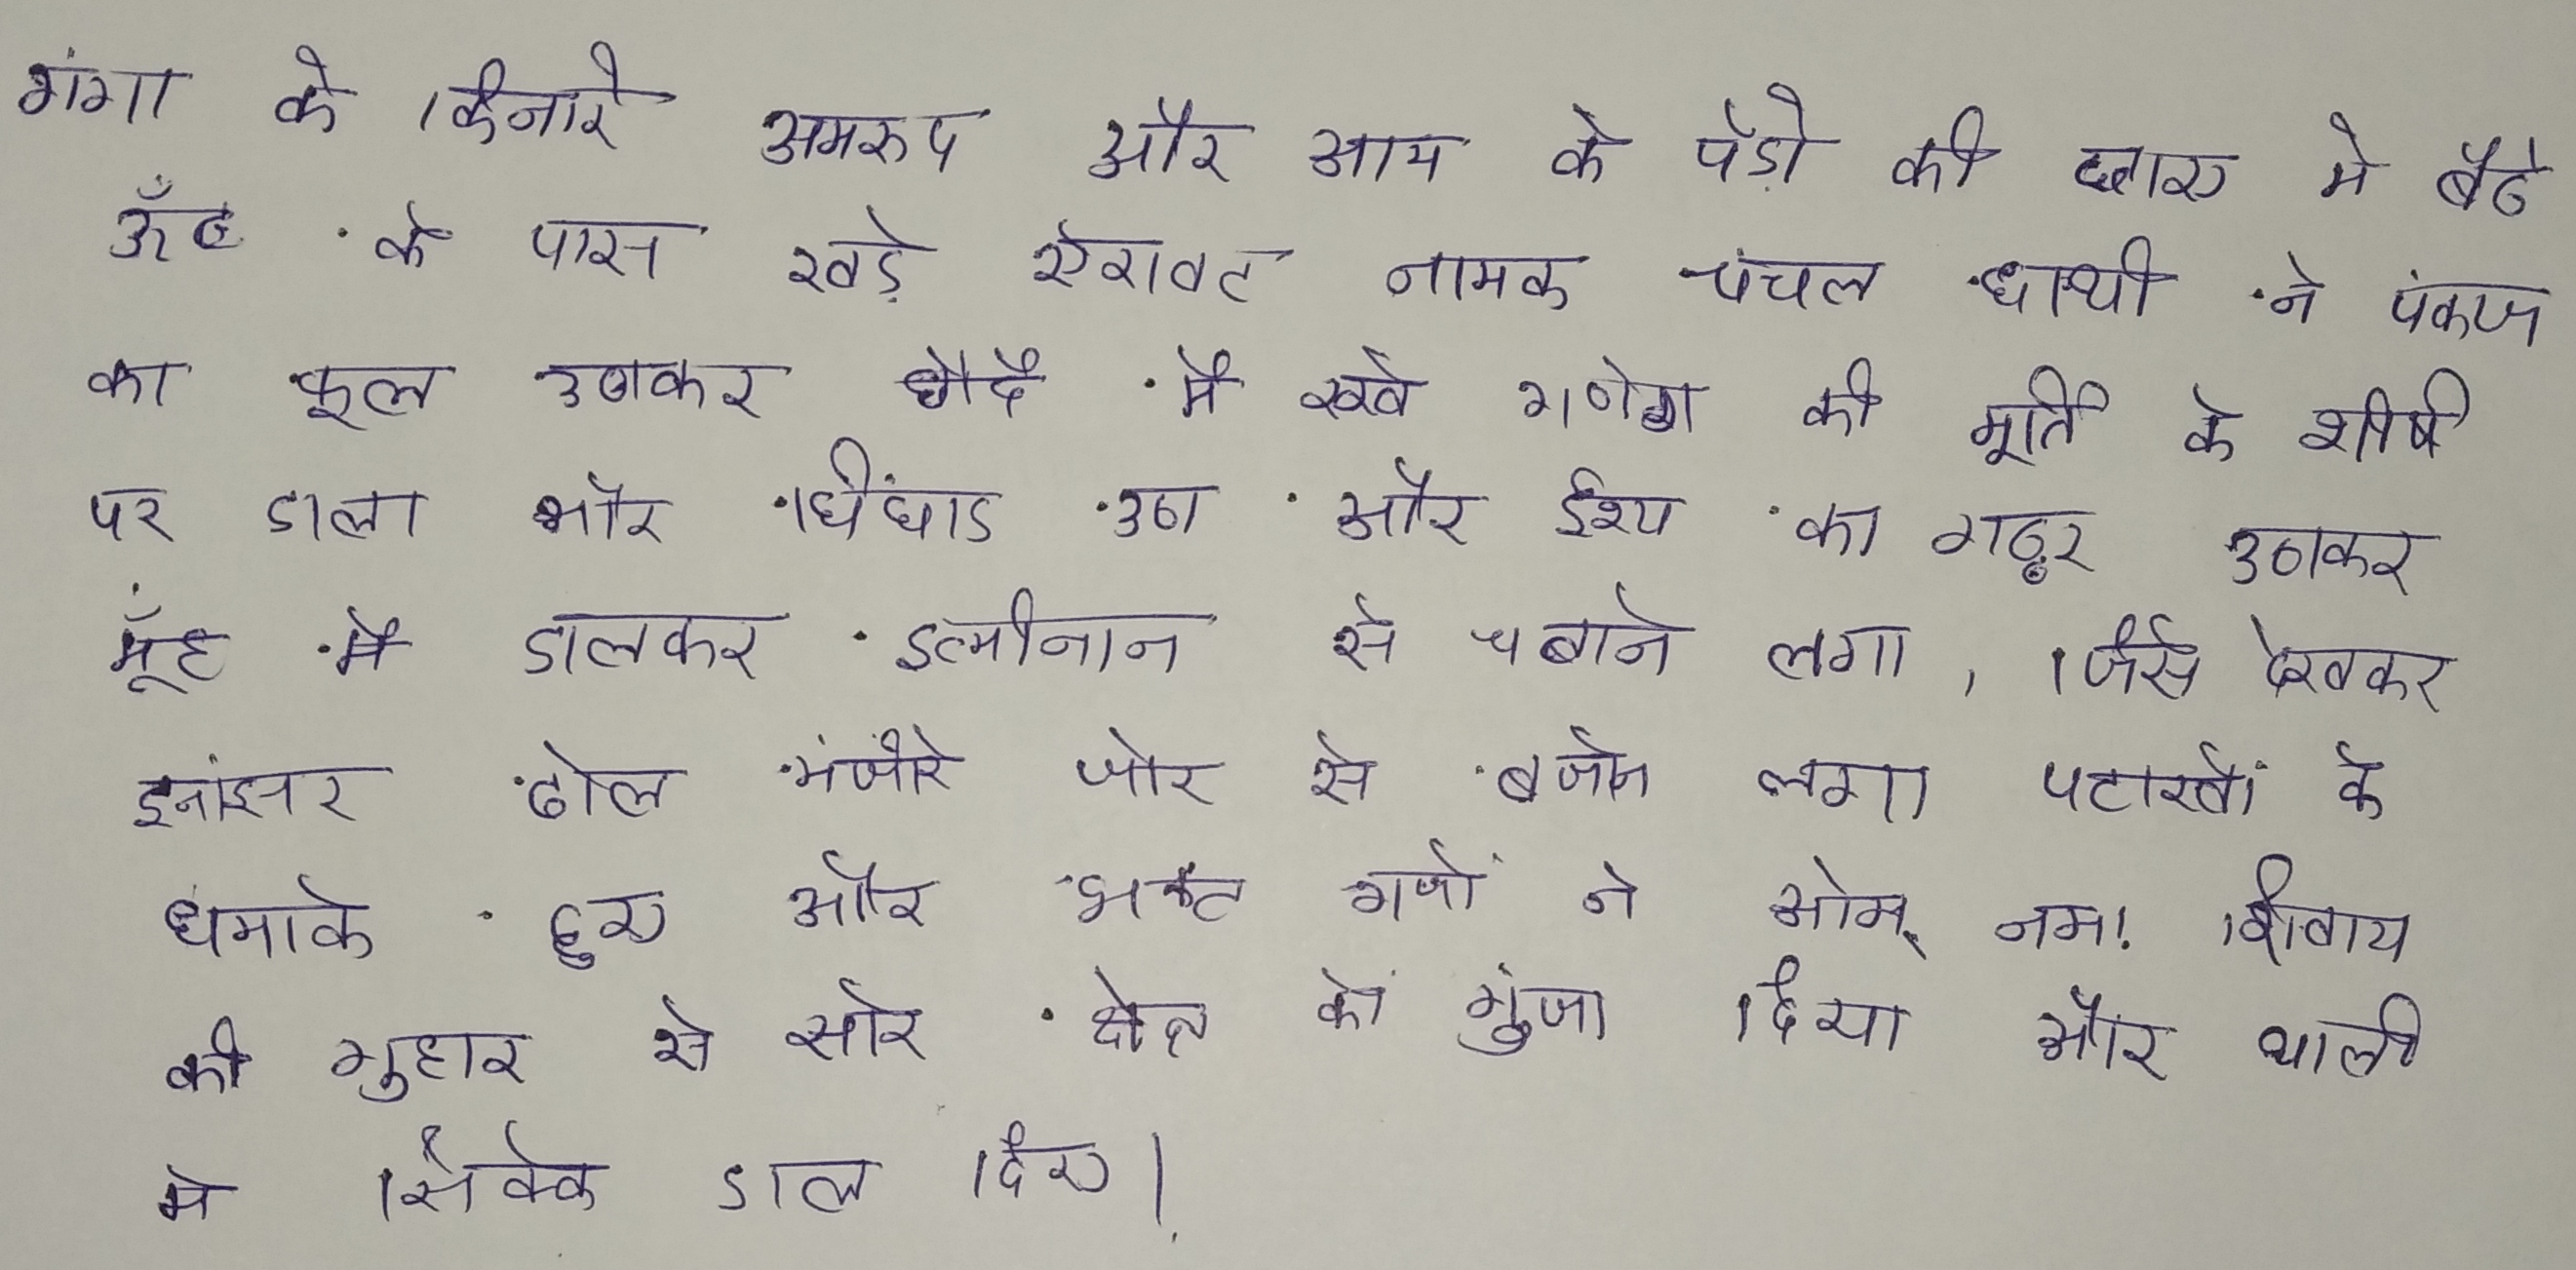 गंगा के किनारे अमरुप और आम के पेंड़ो की छाए मे बैठे
ऊँट के पास खड़े ऐरावट नामक चंचल धाथी ने पंकज
का फूल उठाकर हौदे मे रखे गणेश की मूर्ति के शीर्ष
पर डाला और घिंघाड उठा और ईश्य का गठ्ठर उठाकर
मूँह मे डालकर इत्मीनान से चबाने लगा, जिसे देखकर
ढोल मंजीरे जोर से बजने लगा पटाखों के
धमाके हुए और भक्ट गजों ने ओम् नमः शिवाय
की गुहार से सारे क्षेत्र को गुंजा दिया और थाली
मे सिक्के डाल दिए।